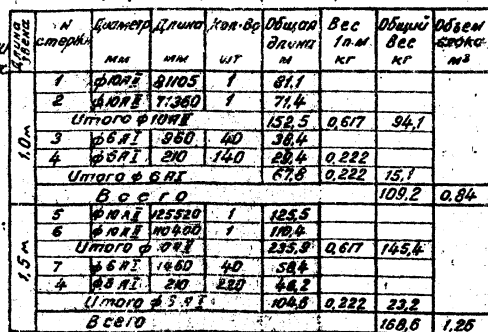 Длина звена N стержн Диаметр мм Длина мм Кол-во шт Общая длина м Вес 1п.м кг Общий Вес кг Объем м³
1,0м
1 ф10АII 81105 1 81,1
2 ф10АII 71360 1 71,4
Итого ф10АII 152,5 0,617 94,1
3 ф6АI 960 40 38,4
4 ф6АI 210 140 29,4 0,222
Итого ф6АI 67,8 0,222 15,1
Всего 109,2 0.84
1,5м
5 ф10АII 125520 1 125,5
6 ф10АII 110400 1 110,4
Итого ф 10АII 235,9 0,617 145,4
7 ф6АI 1460 40 58,4
4 ф6АI 210 220 46,2
Итого ф6АI 104,6 0,222 23,2
Всего 168,6 1,26